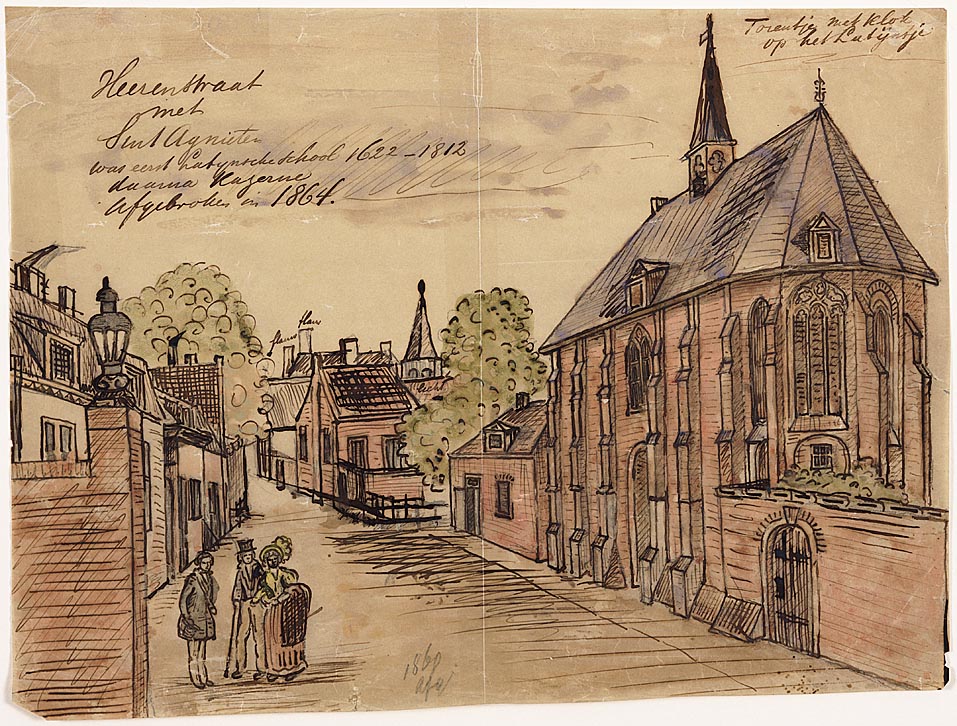 Heerenstraat
met
Sint Agnieten
was eerst Latynsche School 1622 - 1812
daarna Kazerne
Afgebroken in 1864.
Torentje met Klok
op het Latijntje
blauw
1860